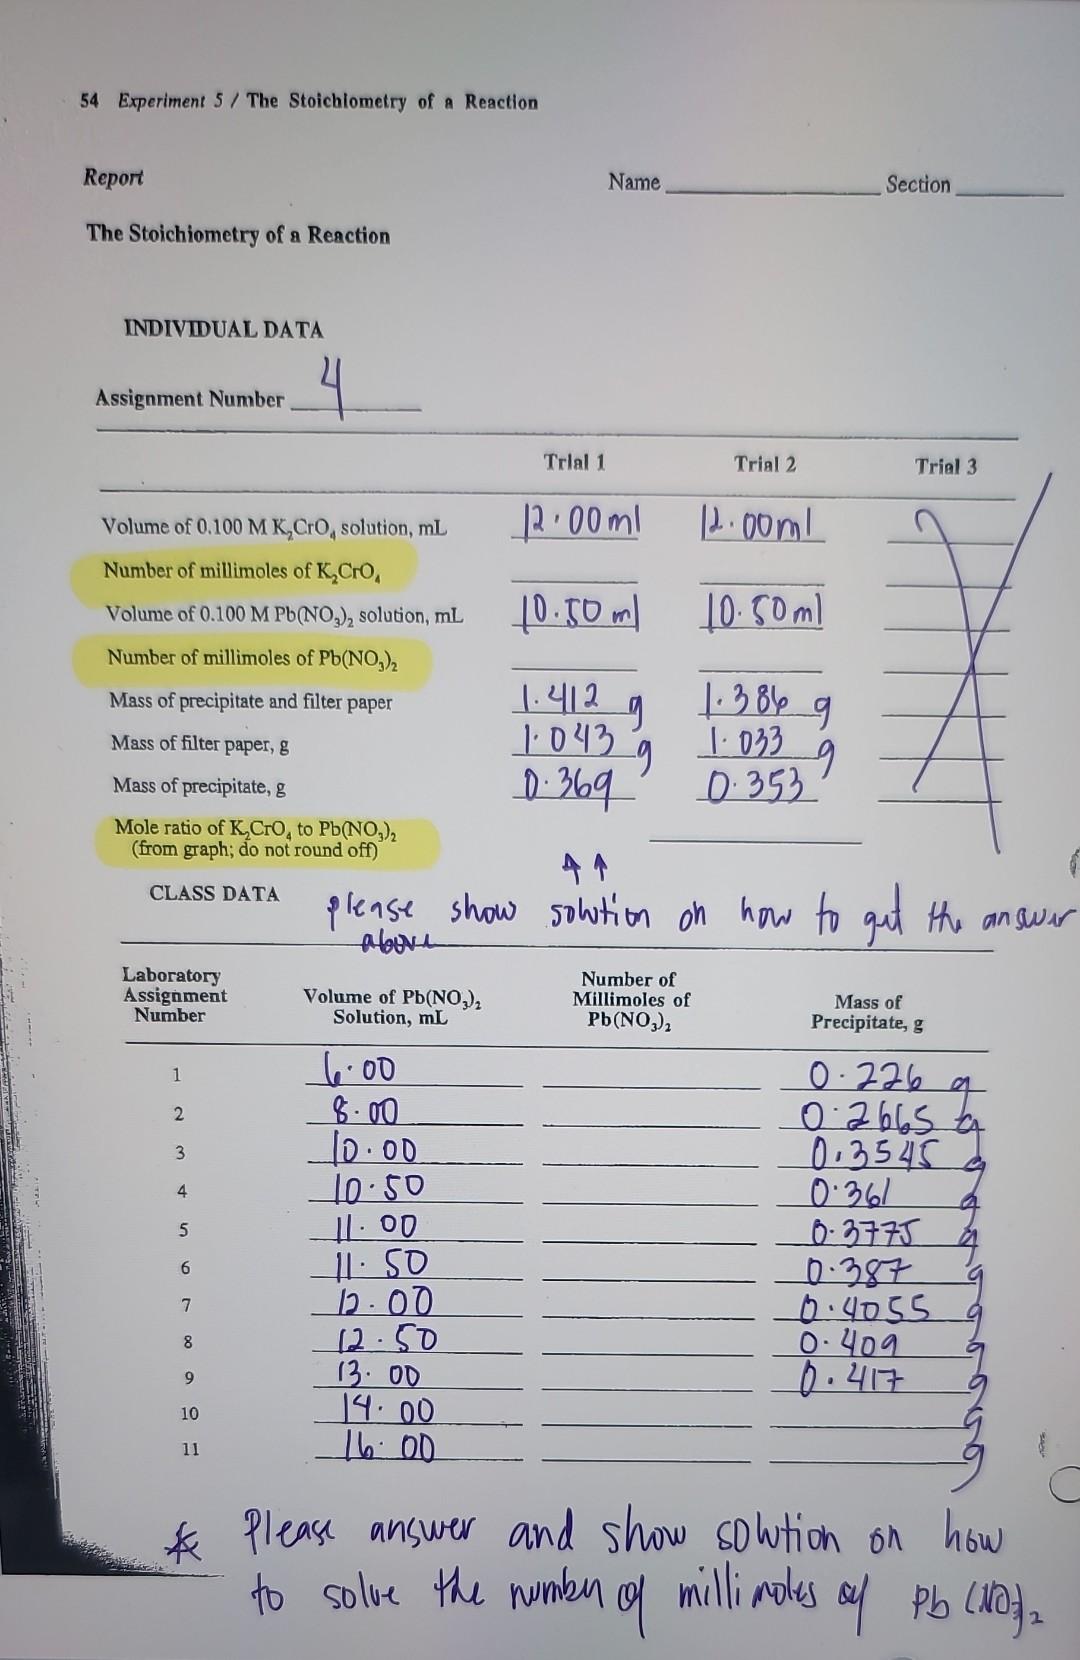 54 Experiment 5 / The Stoichiometry of a Reaction
Report Name Section
The Stoichiometry of a Reaction
INDIVIDUAL DATA
Assignment Number 4
Trial 1 Trial 2 Trial 3
Volume of 0.100 M K₂CrO₄ solution, mL 12.00ml 12.00ml
Number of millimoles of K₂CrO₄
Volume of 0.100 M Pb(NO₃)₂ solution, mL 10.50 ml 10.50ml
Number of millimoles of Pb(NO₃)₂
Mass of precipitate and filter paper 1.412 g 1.386 g
Mass of filter paper, g 1.043 g 1.033 g
Mass of precipitate, g 0.369 0.353
Mole ratio of K₂CrO₄ to Pb(NO₃)₂
(from graph; do not round off)
CLASS DATA
please show solution on how to get the answer
above
Laboratory
Assignment
Number
Volume of Pb(NO₃)₂
Solution, mL
Number of
Millimoles of
Pb(NO₃)₂
Mass of
Precipitate, g
1 6.00 0.226 g
2 8.00 0.2665 g
3 10.00 0.3545 g
4 10.50 0.361 g
5 11.00 0.3775 g
6 11.50 0.387 g
7 12.00 0.4055 g
8 12.50 0.409 g
9 13.00 0.417 g
10 14.00 g
11 16.00 g
* Please answer and show solution on how
to solve the number of millimoles of Pb (NO3)2